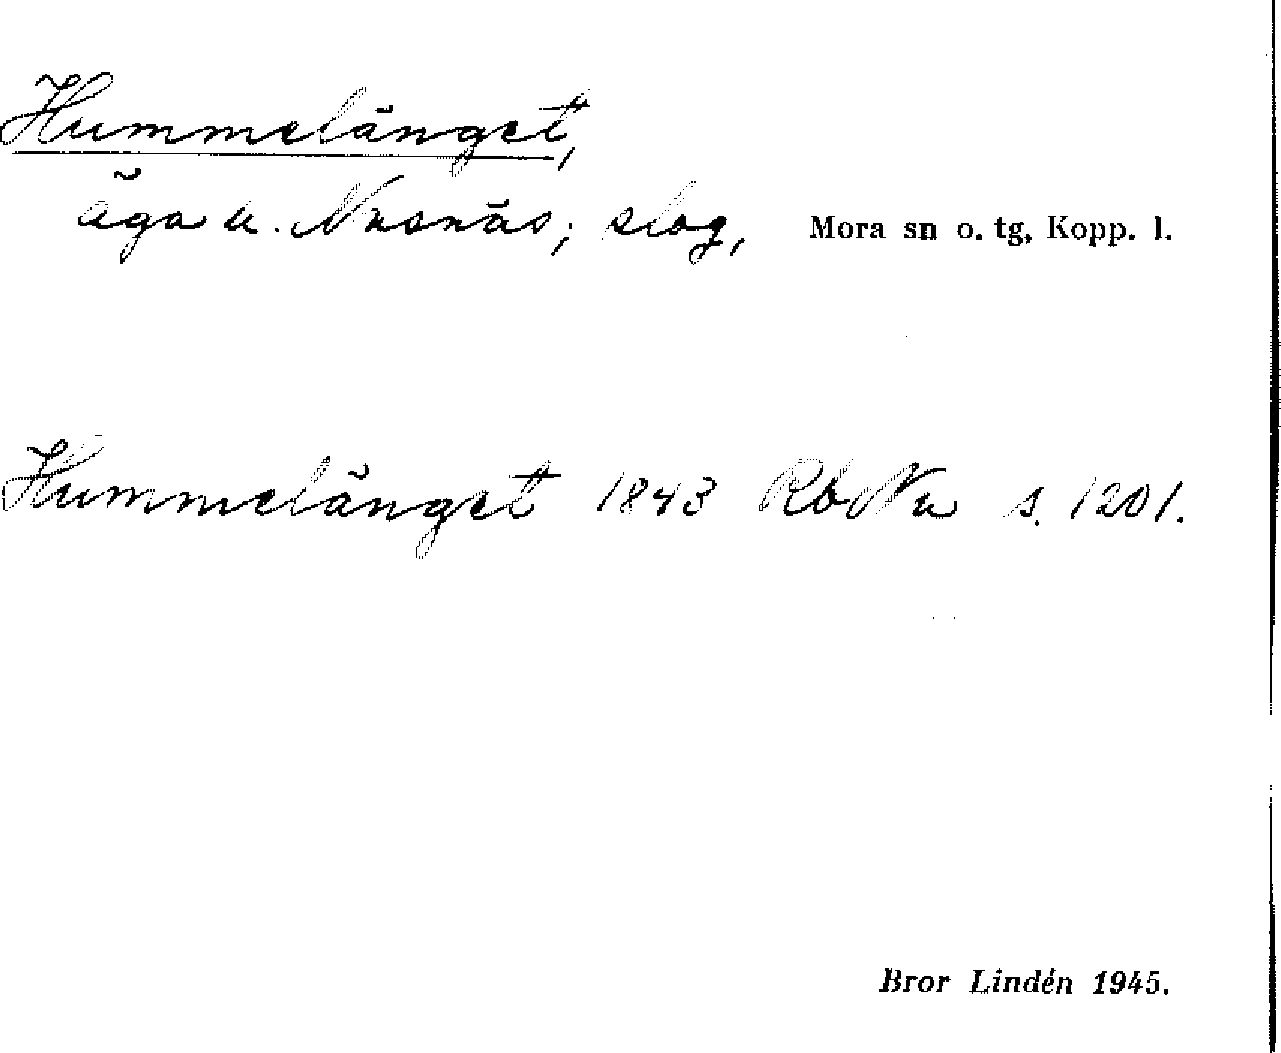 Hummelänget,
äga u. Nusnäs; slog, Mora sn o. tg, Kopp. l.
Hummelänget 1843 Rb Nu s. 1201.
Bror Lindén 1945.